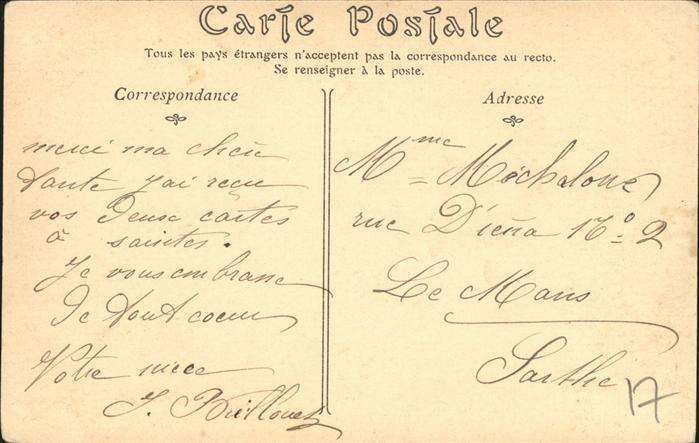 Carte Postale
Tous les pays étrangers n'acceptent pas la correspondance au recto.
Se renseigner à la poste.
Correspondance
merci ma chère
tante j'ai reçu
vos deux cartes
à saintes.
Je vous embrasse
de tout coeur
Votre niece
J.
Adresse
Mme
rue D'iéna No 2
Le Mans
Sarthe
17